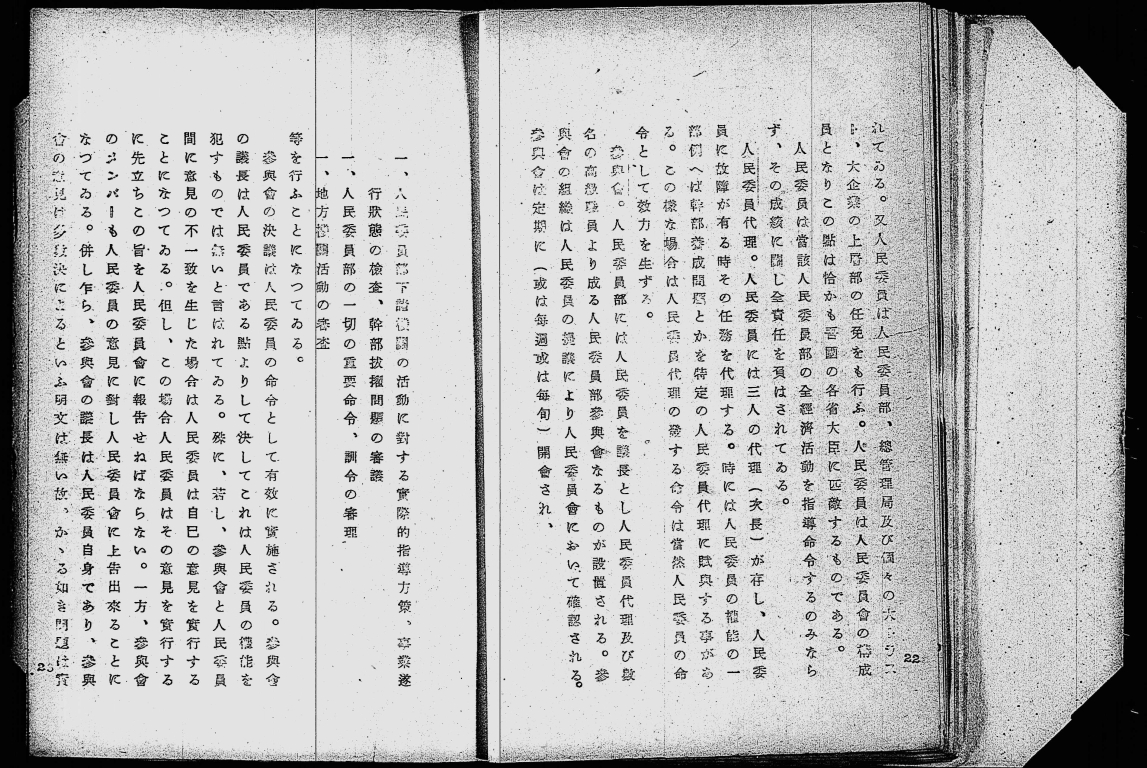 れてゐる。又人民委員は人民委員部、總管理局及び個々の大トラス
ト、大企業の上層部の任免をも行ふ。人民委員は人民委員會の構成
員となりこの點は恰かも吾國の各省大臣に匹敵するものである。
人民委員は當該人民委員部の全經濟活動を指導命令するのみなら
ず、その成績に關し全責任を負はされてゐる。
人民委員代理。人民委員には三人の代理（次長）が存し、人民委
員に故障が有る時その任務を代理する。時には人民委員の權能の一
部例へば幹部養成問題とかを特定の人民委員代理に賦與する事があ
る。この樣な場合は人民委員代理の發する命令は當然人民委員の命
令として效力を生ずる。
參與會。人民委員部には人民委員を議長とし人民委員代理及び數
名の高級職員より成る人民委員部參與會なるものが設置される。參
與會の組織は人民委員の提議により人民委員會において確認される。
參與會は定期に（或は每週或は每旬）開會され、
22
一、人民委員部下諸機關の活動に對する實際的指導方策、事業遂
行狀態の檢査、幹部拔擢問題の審議
一、人民委員部の一切の重要命令、訓令の審理
一、地方機關活動の審査
等を行ふことになつてゐる。
參與會の決議は人民委員の命令として有效に實施される。參與會
の議長は人民委員である點よりして決してこれは人民委員の權能を
犯すものでは無いと言はれてゐる。殊に、若し、參與會と人民委員
間に意見の不一致を生じた場合は人民委員は自己の意見を實行する
ことになつてゐる。但し、この場合人民委員はその意見を實行する
に先立ちこの旨を人民委員會に報告せねばならない。一方、參與會
のメンバーも人民委員の意見に對し人民委員會に上告出來ることに
なつてゐる。併し乍ら、參與會の議長は人民委員自身であり、參與
會の意見は多數決によるといふ明文は無い故、かゝる如き問題は實
23